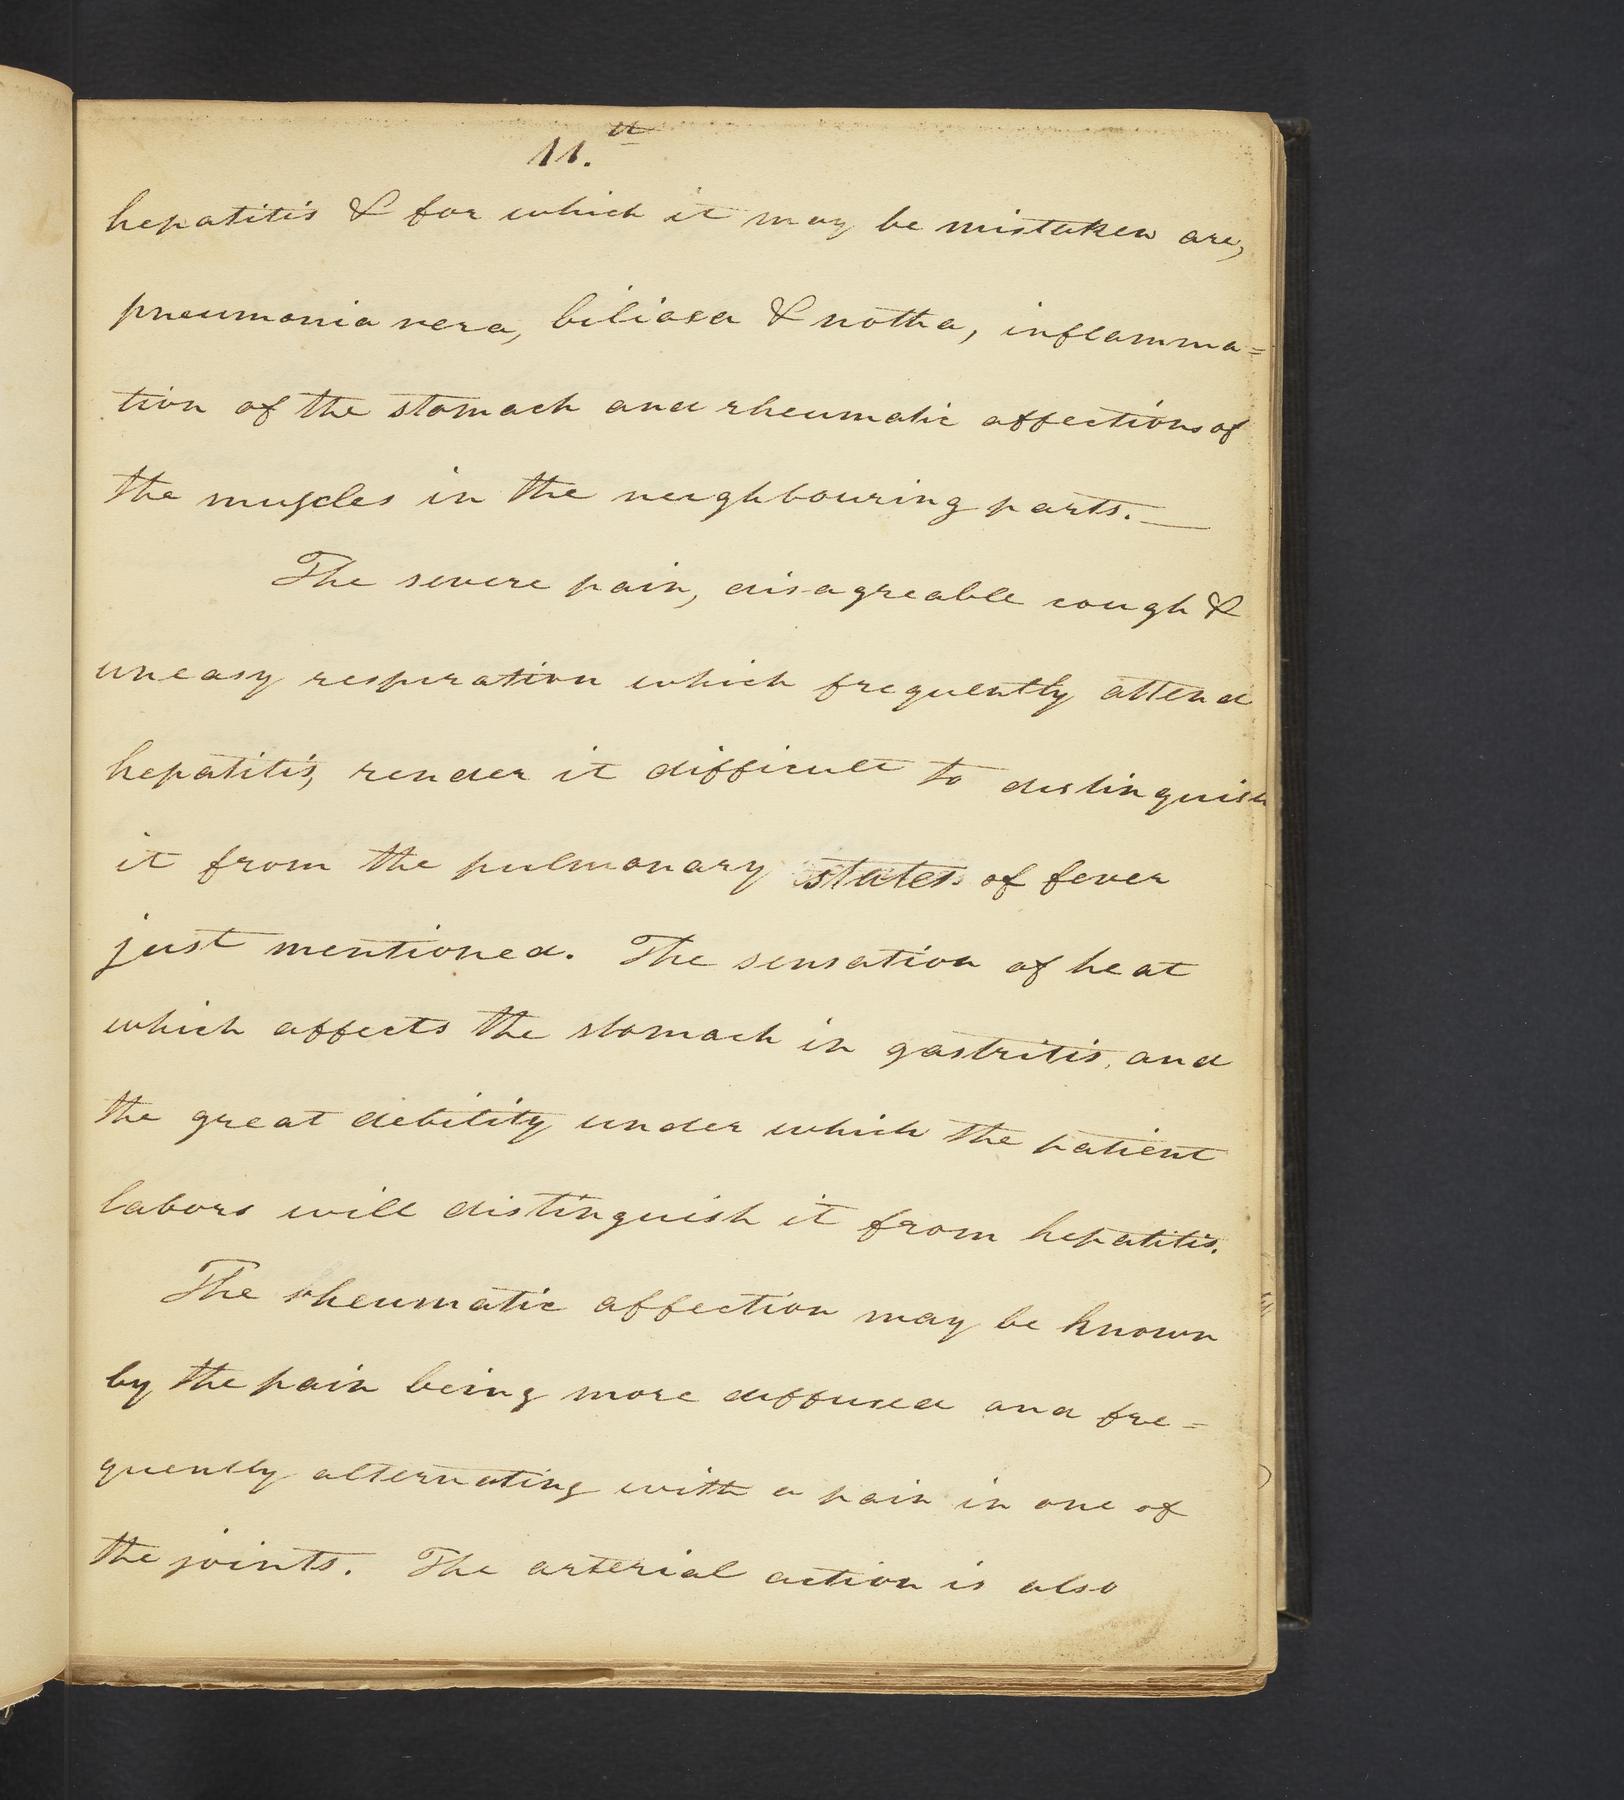 11.th
hepatitis & for which it may be mistaken are,
pneumonia vera, biliosa & notha, inflamma=
tion of the stomach and rheumatic affections of
the muscles in the neighbouring parts.—
The severe pain, disagreable cough &
uneasy respiration which frequently attend
hepatitis, render it difficult to distinguish
it from the pulmonary states of fever
just mentioned. The sensation of heat
which affects the stomach in gastritis, and
the great debility under which the patient
labors will distinguish it from hepatitis.
The rheumatic affection may be known
by the pain being more diffused and fre=
quently alternating with a pain in one of
the joints. The arterial action is also